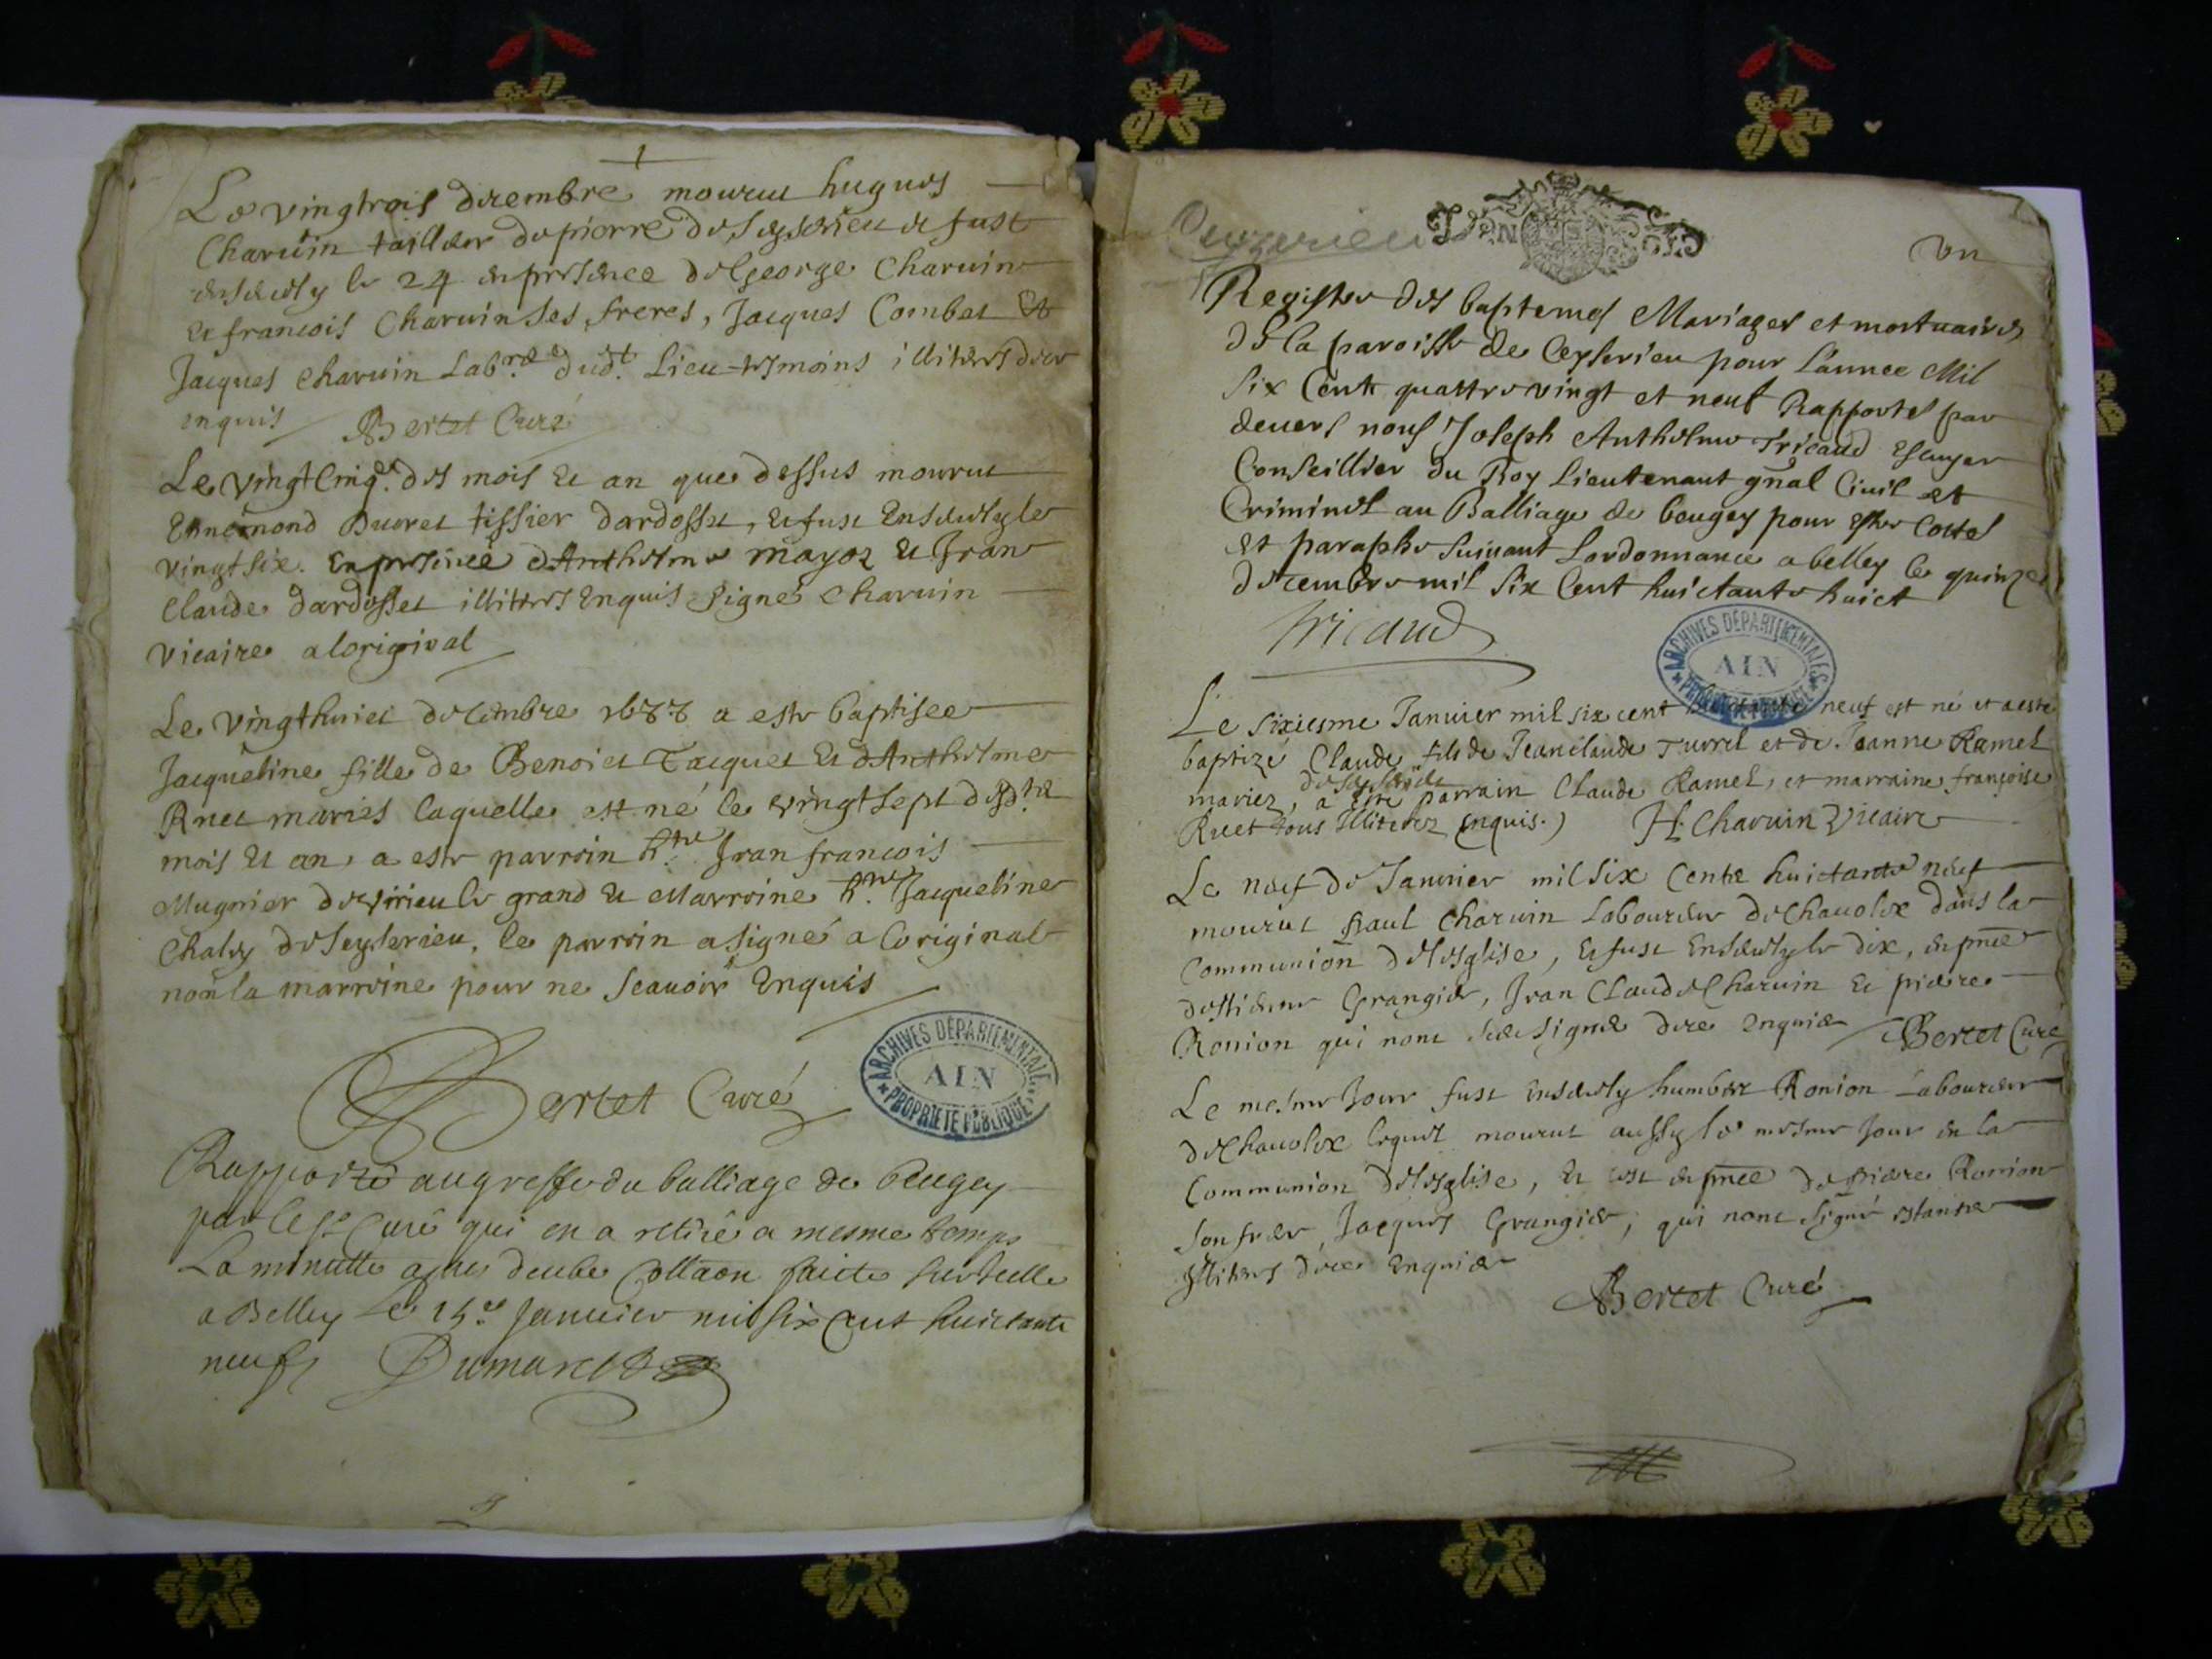 1
Le vingtrois decembre mourut hugues
Charuin tailleur de pierre de Seyserieu et fust
ensevely le 24 en presence de George Charuin
et francois Charuin ses freres, Jacques Combet et
Jacques Charuin Lab.rs dud.t Lieu tesmoins illiteres de ce
enquis Bertet Curé
Le vingt cinq.e des mois et an que dessus mourut
Ennemond Buvret tissier dardosset, et fust ensevely le
vingt six. En presence d'Anthelme mayoz et Jean
Claude dardosset illiteres enquis signé Charuin
vicaire a loriginal
Le vingthuict decembre 1688 a este baptisee
Jacqueline fille de Benoict Tacquet et d'Anthelme
Ruet mariés laquelle est né le vingt sept desd.ts
mois et an, a este parrin h.te Jean francois
Mugnier de virieu le grand et Marrine h.te Jacqueline
Chaley de Seyserieu, le parrin a signé a Loriginal
non la marrine pour ne scauoir enquis
Bertet Curé
ARCHIVES DÉPARTEMENTALES
AIN
PROPRIÉTÉ PUBLIQUE
Rapporté au greffe du balliage de Beugey
par le s.r Curé qui en a retiré a mesme temps
La minutte a deube Collaon faicte sur icelle
a Belley Le 15.e Januier mil six cent huictante
neuf Dumarest
Ceyzerieu
un
Registre des baptemes Mariages et mortuaires
de la paroisse de Ceyserieu pour L'annee Mil
six Cent quattre vingt et neuf Rapportés par
deuers nous Joseph Anthelme Tricaud Escuyer
Conseillier du Roy Lieutenant gnal Ciuil et
Criminel au Balliage de beugey pour estre Cottés
et paraphe suiuant Lordonnance a belley le quinze
decembre mil six Cent huictante huict
Tricaud
ARCHIVES DÉPARTEMENTALES
AIN
PROPRIÉTÉ PUBLIQUE
Le sixiesme Januier mil six cent huictante neuf est né et a esté
baptizé Claude fils de Jean Claude Turrel et de Jeanne Ramel
de Seyserieu
mariez, a esté parrain Claude Ramel, et marraine françoise
Ruet tous Illiterez enquis.) H. Charuin Vicaire
Le neuf de Januier mil six Cents huictante neuf
mourut paul Charuin Laboureur de Chauolex dans la
Communion de lesglise, et fust ensevely le dix, en pnce
destienne Grangier, Jean Claude Charuin et pierre
Ronion qui nont sceu signer de ce enquis Bertet Curé
Le mesme Jour fust ensevely humbert Ronion Laboureur
de Chauolex lequel mourut aussy le mesme Jour en la
Communion de lesglise, et cest en pnce de pierre Ronion
son frere, Jacques Grangier, qui nont signé estants
illiteres de ce enquis
Bertet Curé